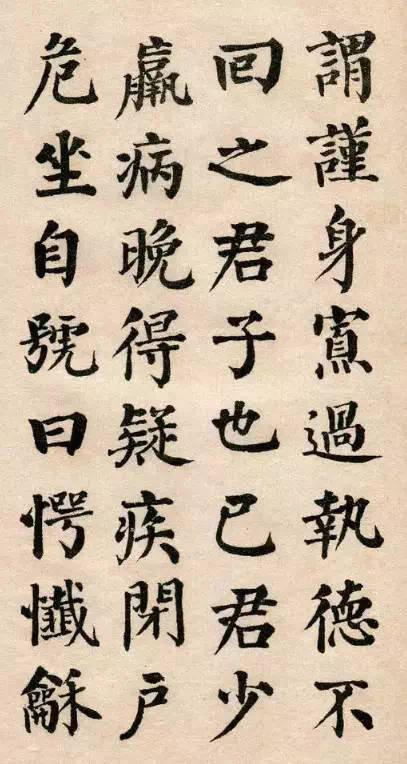 謂謹身寡過執德不
回之君子也已君少
羸病晚得疑疾閉户
危坐自號曰愕懺龢